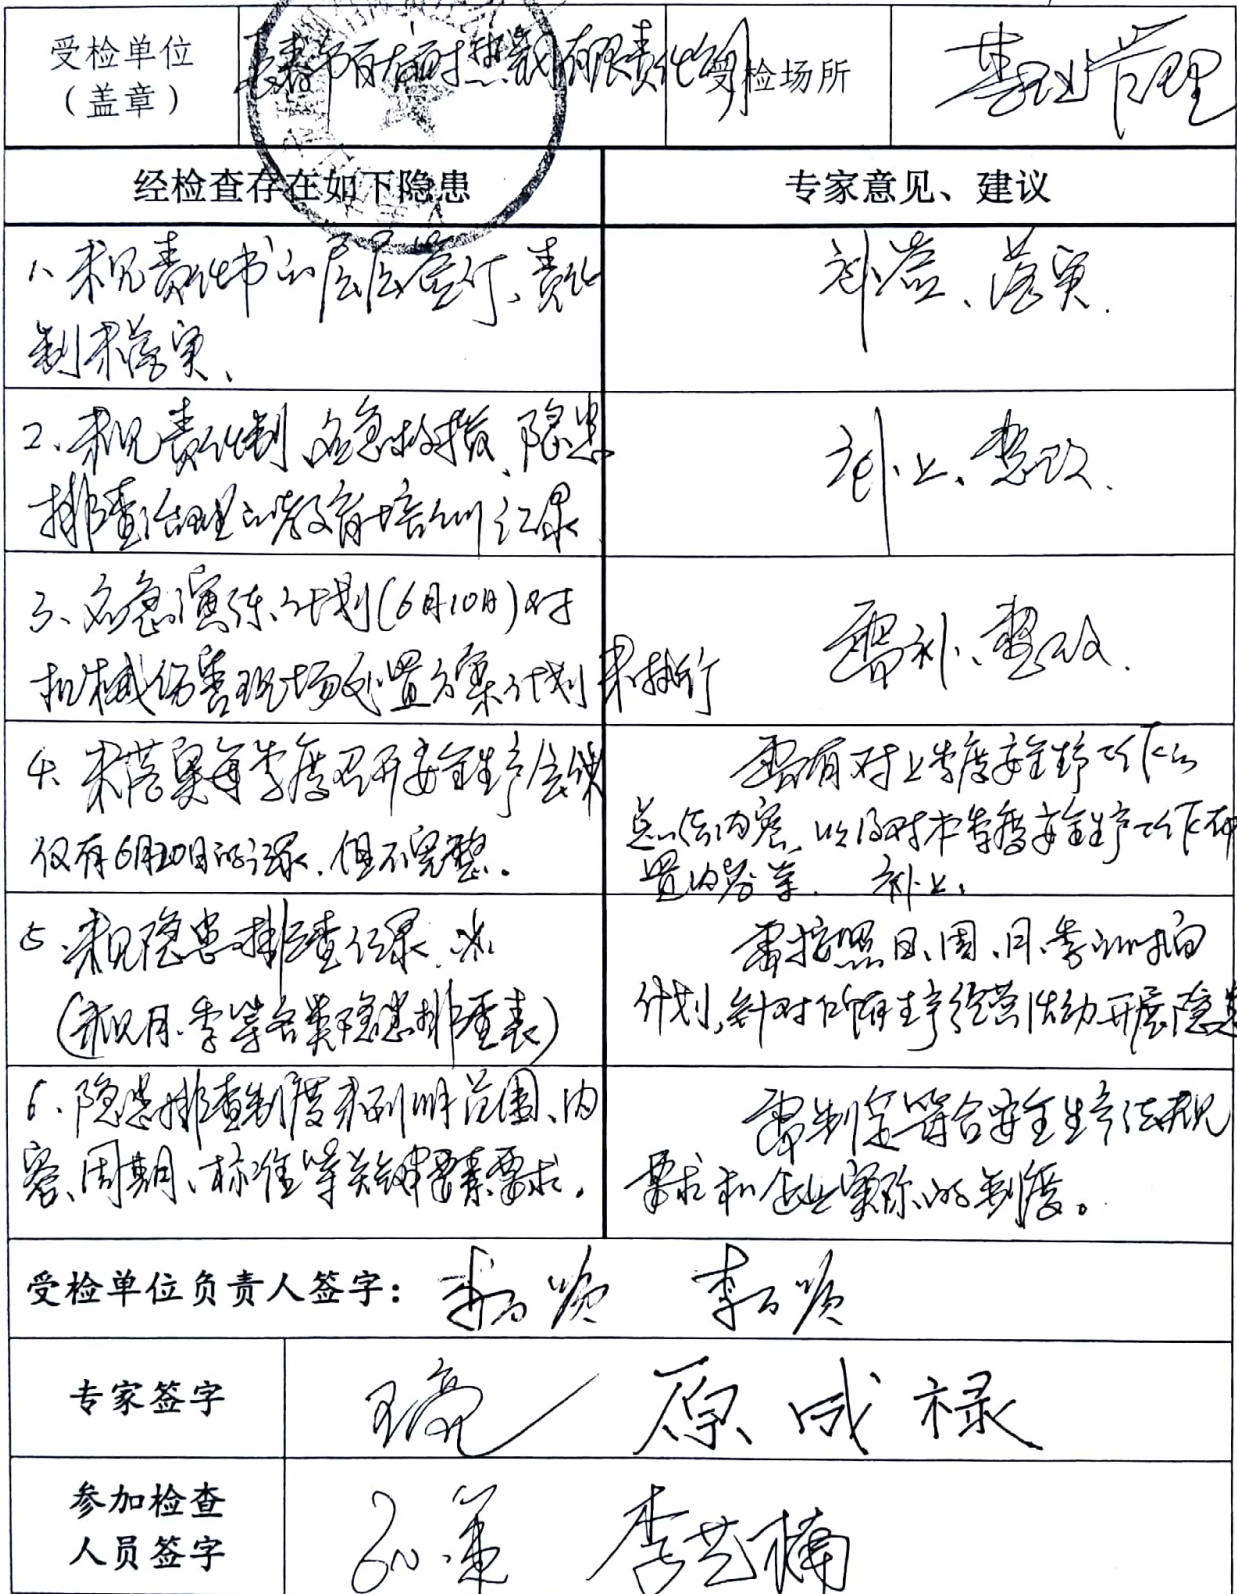 受检单位
（盖章）
有限责任公司
受检场所
基础管理
经检查存在如下隐患
专家意见、建议
1、未见责任书的层层签订、责任
制未落实、
补签、落实.
2、未见责任制、应急救援、隐患
排查治理的教育培训记录
补上、整改.
3、应急演练计划(6月10日)对
机械伤害现场处置方案计划未执行
需补、整改.
4、未落实每季度召开安全生产会议
仅有6月20日的记录.但不完整。
需有对上季度安全生产工作的
总结内容，以及对本季度安全生产工作布
置内容等. 补上.
5、未见隐患排查记录.
(未见月.季等各类隐患排查表)
需按照日、周、月、季的排查
计划,针对所有生产经营活动开展隐患
6、隐患排查制度未列明范围、内
容、周期、标准等关键要素要求。
需制定符合安全生产法规
要求和企业实际的制度。
受检单位负责人签字：
专家签字
原成禄
参加检查
人员签字
李艺楠